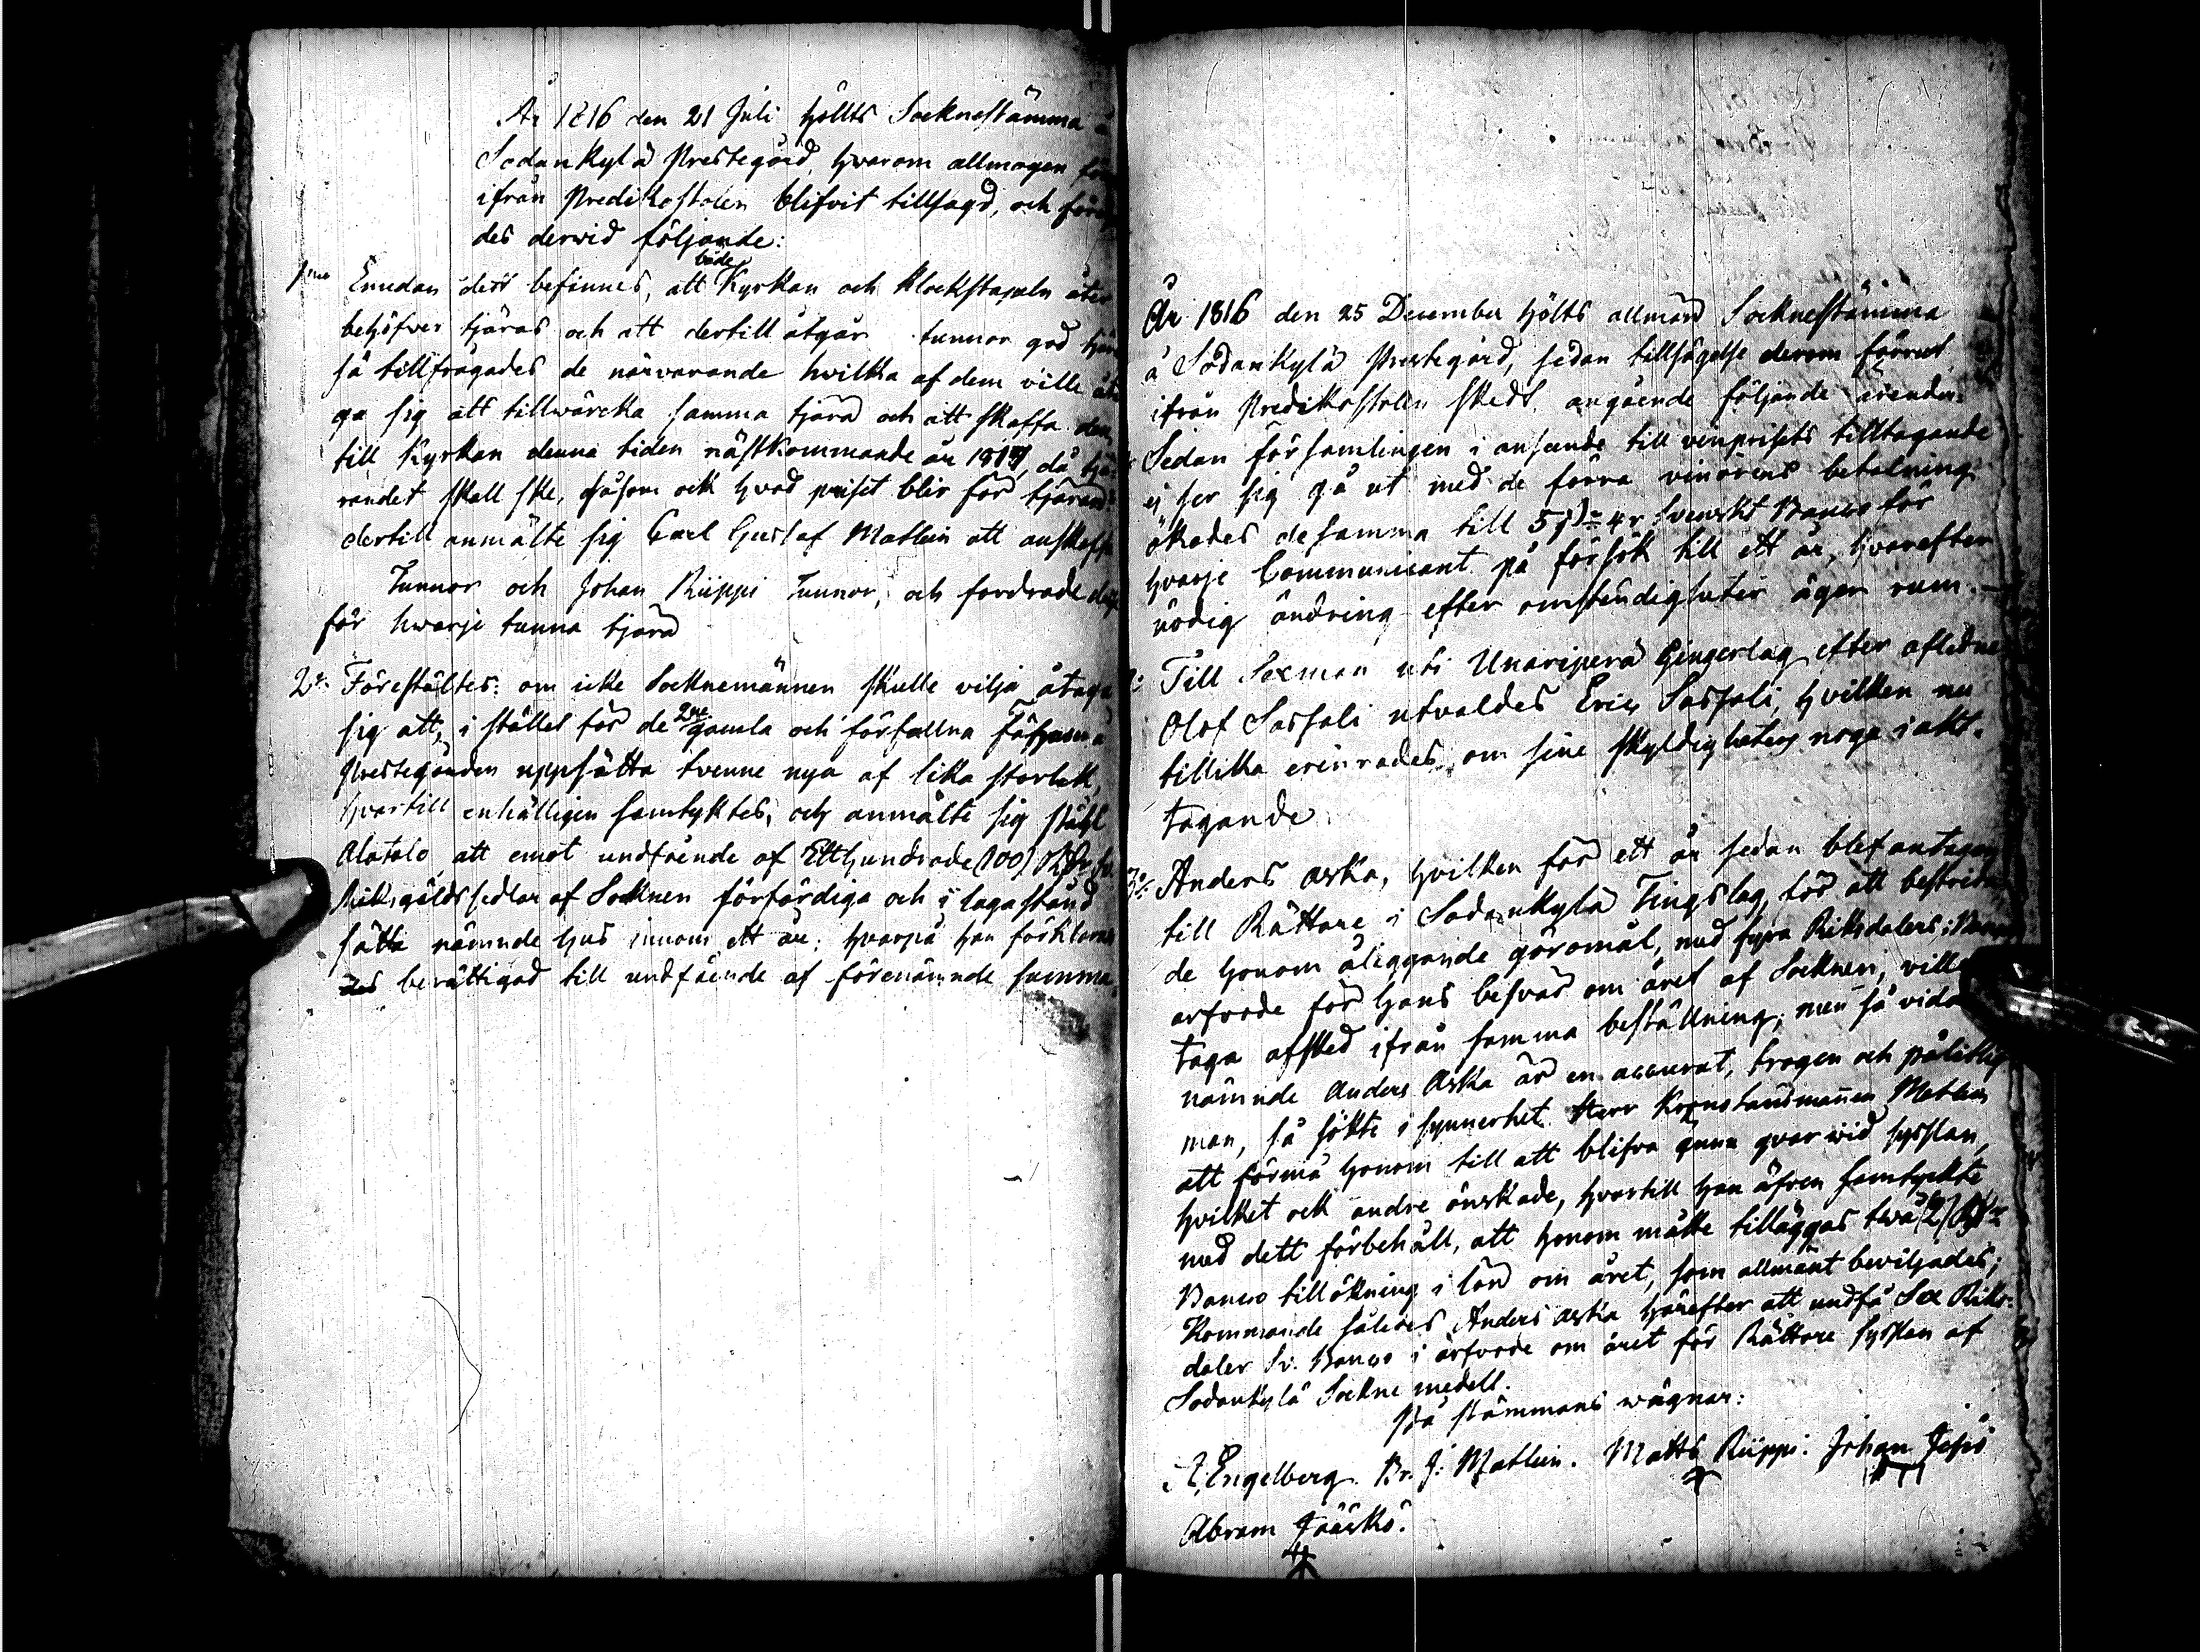 År 1816 den 21 Juli hjöllts Socknestämma å
Sodankylä Prestegård, hvarom allmogen för
ifrån Predikostolen blifvit tillsagd, och före
des derwid följande:
1mo Emedan dett befinnes, att både Kyrkan och Klockstapeln åter
behöfver tjäras och att dertill åtgår tunnor god tjära
så tillfrågades de närvarande hvilka af dem ville åta
ga sig att tillwärcka samma tjära och att skaffa den
till Kyrkan denna tiden nästkommande år 1817, då tjä
randet skall ske, såsom ock hvad priset blir för tjäran:
dertill anmälte sig Carl Gustaf Matlein att anskaffa
Tunnor och Johan Riippi Tunnor, och fordrade
för hwarje tunna tjära
2o: Förestältes: om icke Socknemännen skulle vilja åtaga
sig att, i stället för de 2ne gamla och förfallna Fähusen å
Prestegården uppsätta tvenne nya af lika storlek,
hvartill enhälligen samtyktes, och anmälte sig
Alatalo, att emot undfående af Etthundrade (100) Rdr
Riksgäldssedlar af Socknen förfärdiga och i lagastånd
sätta nämnde hus innom ett år, hvarpå han förklara
des berättigad till undfående af förenämnde summa.
År 1816 den 25 December hölts allmän Socknestämma
å Sodankylä Prestegård, sedan tillsägelse derom förrut
ifrån Predikostolen skedt, angående följande ärender:
Sedan församlingen i anseende till vinprisets tilltagande
ej ser sig gå ut med de förra vinörens betalning
ökades desamma till 5 svenskt Banco för
hvarje Communicant på försök till ett år, hvarefter
nödig ändring efter omständigheter äger rum.
2: Till Sexman uti Unaripera Gingerlag efter aflidne
Olof Sassali utvaldes Eric Sassali, hvilken nu
tillika erinrades, om sine skyldigheters noga i akt-
tagande.
3o: Anders Aska, hvilken för ett år sedan blef antagen
till Rättare i Sodankylä Tingslag, för att bestrida
de honom åliggande göromål, med fyra Riksdalers Banco
arfvode för hans besvär om året af Socknen, ville
taga afsked ifrån samma beställning; men så vida
nämnde Anders Aska är en accurat, trogen och pålitlig
man, så sökte i synnerhet Herr Kronolänsmannen Matlein
att förmå honom till att blifva ännu qvar wid sysslan,
hvilket ock andre önskade, hvartill han äfven samtyckte
med dett förbehåll, att honom måtte tilläggas twå (2) Rdr
Banco tillökning i lön om året, som allmänt beviljades;
Kommande således Anders Aska härefter att undfå Sex Riks-
daler Sv. Banco i arfvode om året för Rättare sysslan af
Sodankylä Sockne medell.
På stämmans wägnar:
A. Engelberg. Br. J: Matlein. Matts Riippi. Johan Jesiö
Abram Jääskö.